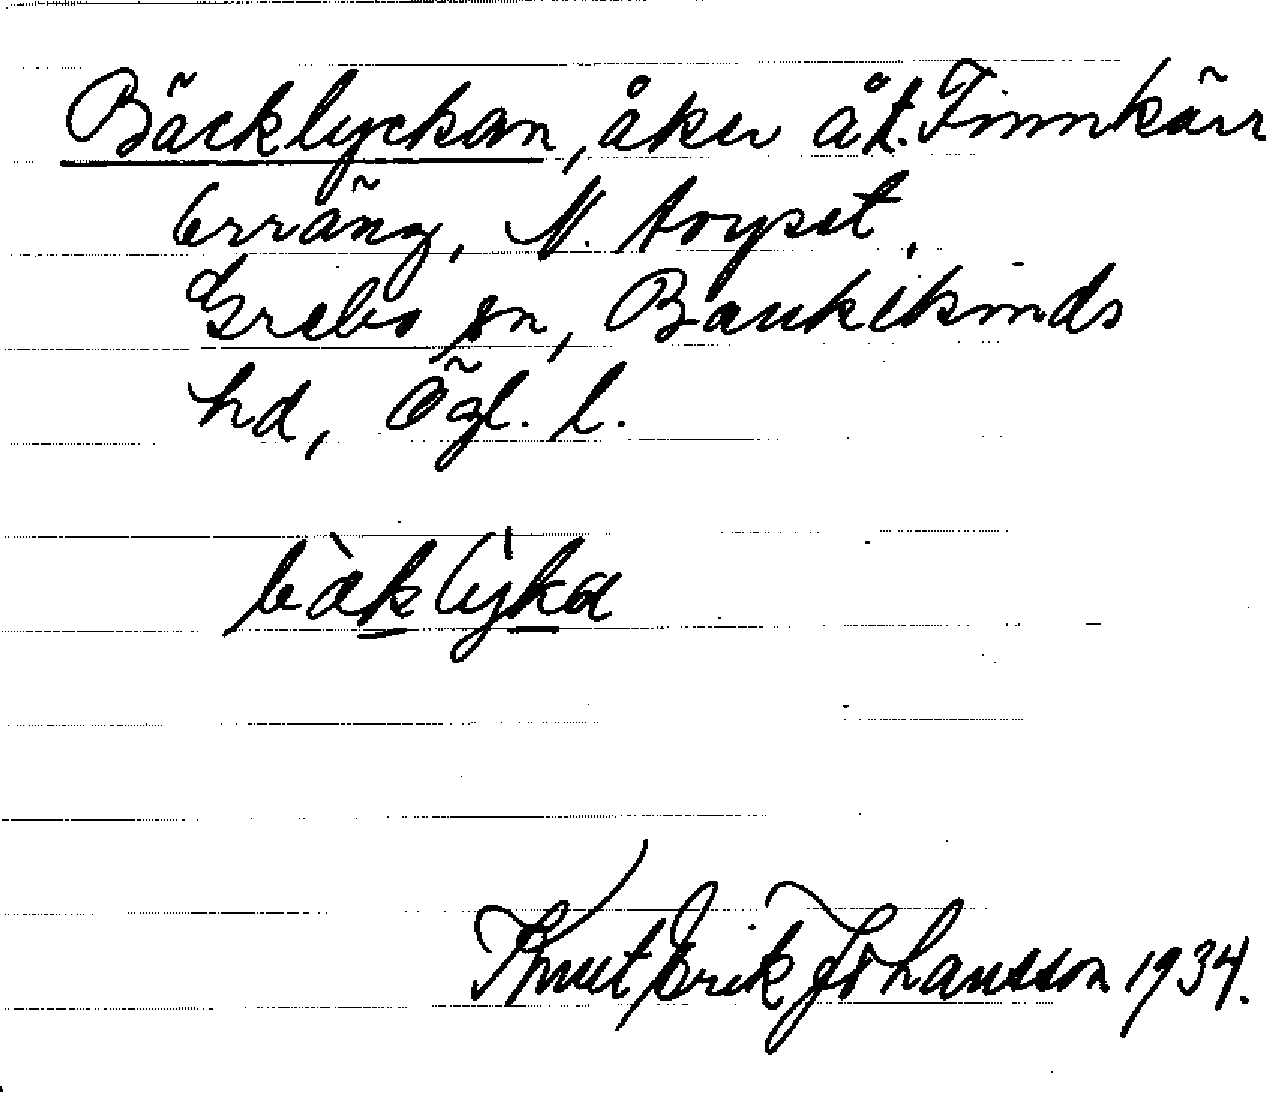 Bäcklyckan, åker åt. Finnkärr
erräng, N. Arpset,
Grebo sn, Bankekinds
hd, Ögl. l.
bàklyka
Knut Erik Johansson 1934.